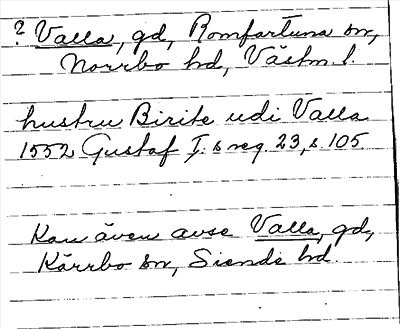 ? Valla, gd, Romfartuna sn,
Norrbo hd, Västm. l.
hustru Birite udi Valla
1552 Gustaf I:s reg. 23, s. 105.
Kan även avse Valla, gd,
Kärrbo sn, Siende hd.